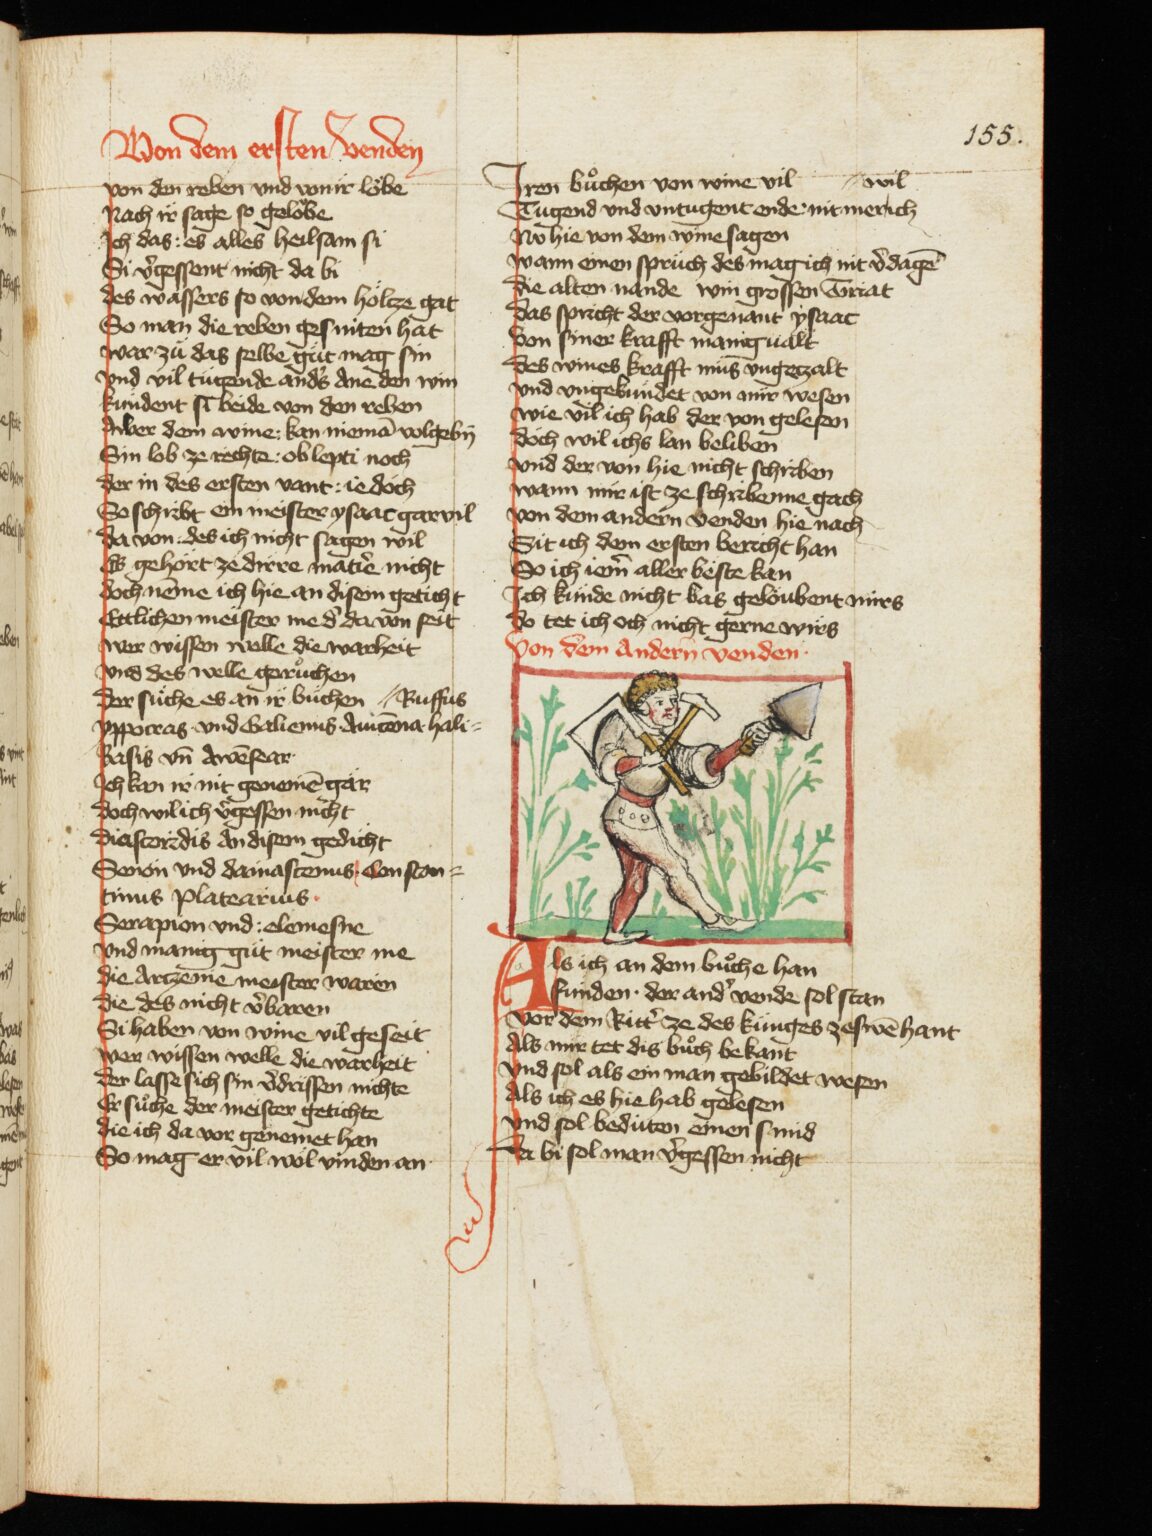 155.
Von dem ersten venden
von den reben und von ir löbe
Nach ir sage so gelöbe
Ich das: es alles heilsam si
Si v̉gessent nicht da bi
des wassers so von dem holtze gat
So man die reben gesniten hat
war zů das selbe gůt mag sin
und vil tugende and̉s ane den win
kundent si beide von den reben
Aber dem wine: kan niemā volgebn̄
Sin lob ze rechte: ob lepti noch
der in des ersten vant: ie doch
So schribt ein meister ysaac gar vil
da von: des ich nicht sagen wil
Es gehört ze dirre matire nicht
doch neme ich hie an disem geticht
Ettlichen meister me d̉ da von seit
wer wissen welle die warheit
und des welle gerůchen
der sůche es an ir bůchen // Ruffus
yppocras und Galienus Auicena hali=
basis vn̄ Awēsear
Ich kan ir nit genemē gar
doch wil ich v̉gessen nicht
diascorīdis an disem gedicht
Senon und damastenus Constan=
tinus Platearius
Serapion und: elemesne
und manig gůt meister me
die Artzenie meister waren
die des nicht v̉baren
Si haben von wine vil geseit
wer wissen welle die warheit
der lasse sich sin v̉drissen nichte
Er sůche der meister getichte
die ich da vor genemet han
So mag er vil wol vinden an
Iren bůchen von wine vil // wil
Tugend und untugent ende: nit me rich
No hie von dem wine sagen
wann einen spruch des mag ich nit v̉dagē
die alten nande win grossen Triat
das spricht der vorgenant ysaac
von siner krafft manigualt
des wines krafft můs ungezalt
und ungebundet von mir wesen
wie vil ich hab der von gelesen
doch wil ichs lan beliben
und der von hie nicht schriben
wann mir ist ze schribenne gach
von dem andern venden hie nach
Sit ich dem ersten bericht han
So ich iem̄ aller beste kan
Ich kunde nicht bas geloubent mirs
So tet ich och nicht gerne wirs
Von dem Andern venden
Als ich an dem bůche han
funden der and̉ vende sol stan
vor dem Ritt̉ ze des kuniges zeswē hant
Als mir tet dis bůch bekant
und sol als ein man gebildet wesen
Als ich es hie hab gelesen
und sol beduten einen smid
Da bi sol man v̉gessen nicht